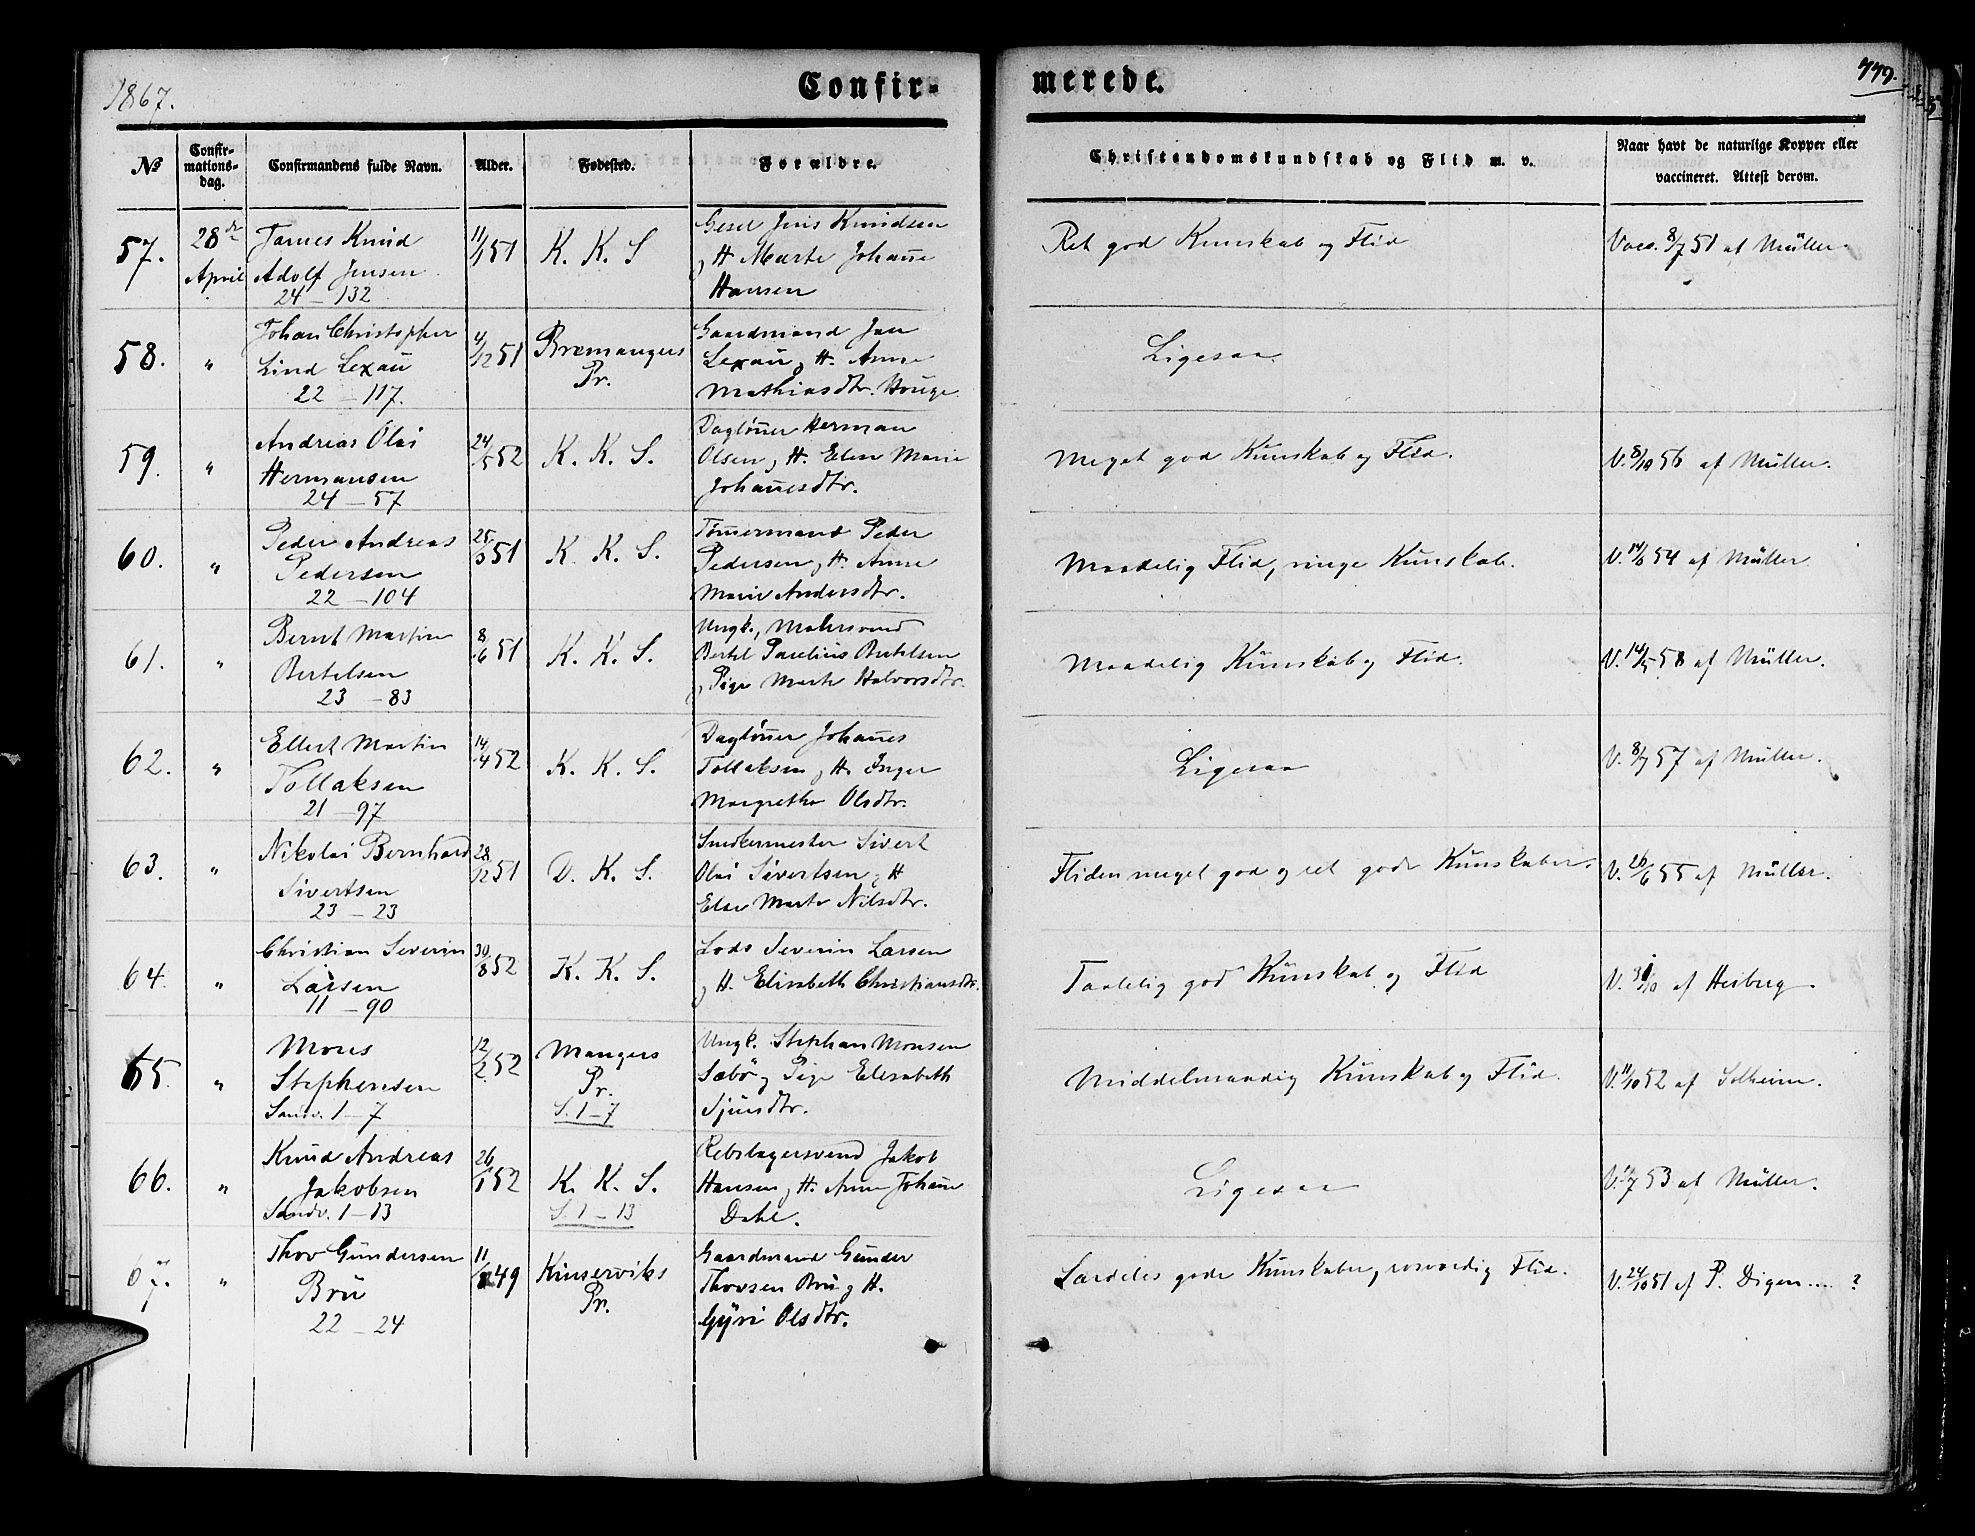 1867.
Confir-
merede.
779.
№
Confir-
mations-
dag.
Confirmandens fulde Navn.
Alder.
Fødested.
Forældre.
Christendomskundskab og Flid m. v.
Naar havt de naturlige Kopper eller
vaccineret. Attest derom.
57.
28de
April
James Knud
Adolf Jensen
24 – 132
11/1 51
K. K. S
Gesel Jens Knudsen
og H Marte Johanne
Hansen
Ret god Kunskab og Flid
Vacc. 8/7 51 af Müller.
58.
"
Johan Christopher
Lind Lexau
22 – 117.
4/12 51
Bremangers
Pr.
Gaardmand Jan
Lexau og H. Anne
Mathiasdtr. Houge
Ligesaa
59.
"
Andreas Olai
Hermansen
24 – 57
24/5 52
K. K. S.
Dagløner Herman
Olsen og H. Elen Marie
Johannesdtr.
Meget god Kunskab og Flid.
V. 8/10 56 af Müller.
60.
"
Peder Andreas
Pedersen
22 – 104
25/3 51
K. K. S.
Tømermand Peder
Pedersen og H. Anne
Marie Andersdtr.
Maadelig Flid, ringe Kunskab.
54 af Müller
61.
"
Bernt Martin
Bertelsen
23 – 83
8/6 51
K. K. S.
Ungk., Malersvend
Bertel Parelius Bertelsen
og Pige Marte Halvorsdtr.
Maadelig Kunskab og Flid.
V. 14/5 58 af Müller.
62.
"
Ellert Martin
Tollaksen
21 – 97
14/4 52
K. K. S.
Dagløner Johanes
Tollaksen og H. Inger
Margrethe Olsdtr.
Ligesaa
V. 8/7 57 af Müller.
63.
"
Nikolai Bernhard
Sivertsen
23 – 23
28/12 51
D. K. S.
Snedkermester Sivert
Olai Sivertsen og H
Else Marte Nilsdtr.
Fliden meget god og ret gode Kunskaber.
V. 26/6 55 af Müller.
64.
"
Christian Severin
Larsen
11 – 90
30/8 52
K. K. S.
Lods Severin Larsen
og H. Elisabeth Christiansdtr.
Taalelig god Kunskab og Flid
af Heiberg.
65.
"
Mons
Stephensen
Sandv. 1 – 7
12/2 52
Mangers
Pr.
S. 1 – 7
Ungk. Stephan Monsen
Sæbø og Pige Elisabeth
Sjursdtr.
Middelmaadig Kunskab og Flid.
V. 11/10 52 af Solheim.
66.
"
Knud Andreas
Jakobsen
Sandv. 1 – 13
26/1 52
K. K. S.
S. 1 – 13
Rebslagersvend Jakob
Hansen og H. Anne Johanne
Dahl.
Ligesaa
53 af Müller.
67.
"
Thor Gundersen
Bru
22 – 24
49
Kinserviks
Pr.
Gaardmand Gunder
Thorsen Bru og H.
Gyri Olsdtr.
Særdeles gode Kunskaber, rosværdig Flid.
V. 24/10 51 af P. Digen.... ?